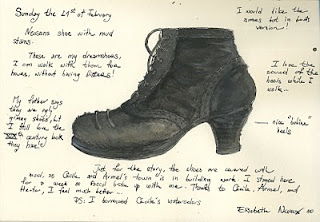 Sunday the 21st of February
Neosens shoe with mud
stains.
These are my dreamshoes,
I can walk with them for
hours, without having blisters!
My father says
they are only
shoes, but
I still love the
XIXth century look
they have!
I would like the
same but in
version...!
I love the
sound of the
heels while I
walk.
nice
heels
Just for the story, the shoes are covered with
mud, as Cécile and Armel's town is in building work. I stayed here
for a week as
Her-tor, I feel much better... Thanks to Cécile, Armel, and
PS: I borrowed Cécile's watercolors
Elisabeth